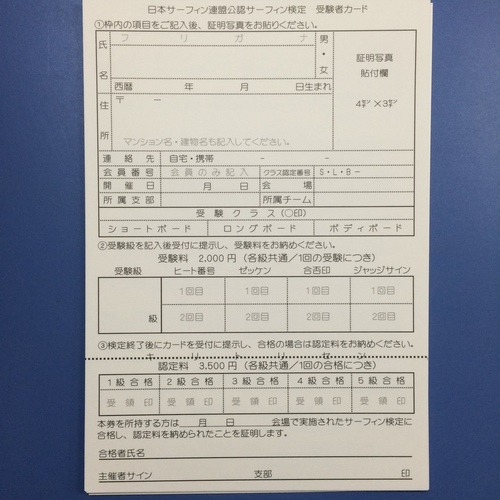 日本サーフィン連盟公認サーフィン検定 受験者カード
①枠内の項目をご記入後、証明写真をお貼りください。
フリガナ
氏名
男・女
証明写真
貼付欄
4㌢×3㌢
西暦 年 月 日生まれ
住所
〒 －
マンション名・建物名も記入してください。
連絡先 自宅・携帯 - -
会員番号 会員のみ記入 クラス認定番号 S・L・B-
開催日 月 日 会場
所属支部 所属チーム
受験クラス(〇印)
ショートボード ロングボード ボディボード
②受験級を記入後受付に提示し、受験料をお納めください。
受験料 2,000円(各級共通/1回の受験につき)
受験級 ヒート番号 ゼッケン 合否印 ジャッジサイン
1回目 1回目 1回目 1回目
級
2回目 2回目 2回目 2回目
③検定終了後にカードを受付に提示し、合格の場合は認定料をお納めください。
キリトリセン
認定料 3,500円(各級共通/1回の合格につき)
1級合格 2級合格 3級合格 4級合格 5級合格
受領印 受領印 受領印 受領印 受領印
本券を所持する方は 月 日 会場で実施されたサーフィン検定に
合格し、認定料を納められたことを証明します。
合格者氏名
主催者サイン 支部 印